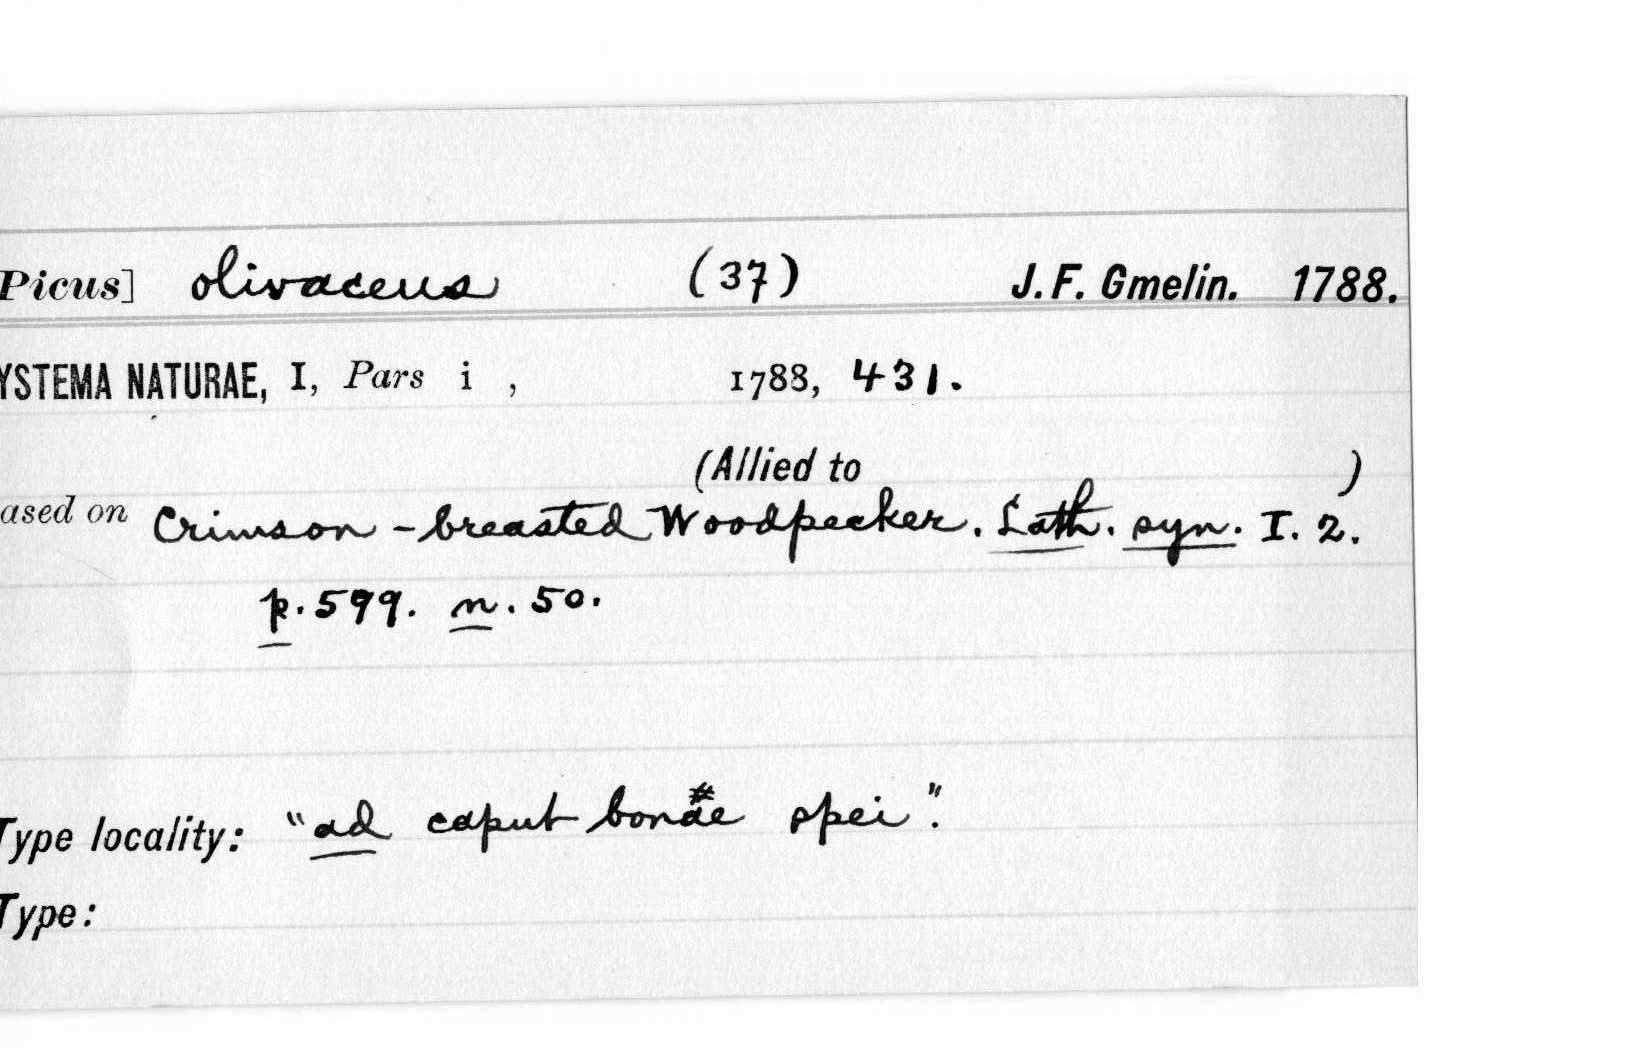 Picus] olivaceus (37) J. F. Gmelin. 1788.
YSTEMA NATURAE, I, Pars i , 1788, 431.
(Allied to )
ased on Crimson-breasted Woodpecker. Lath. syn. I. 2.
p. 599. n. 50.
Type locality: "ad caput bonae spei".
Type: